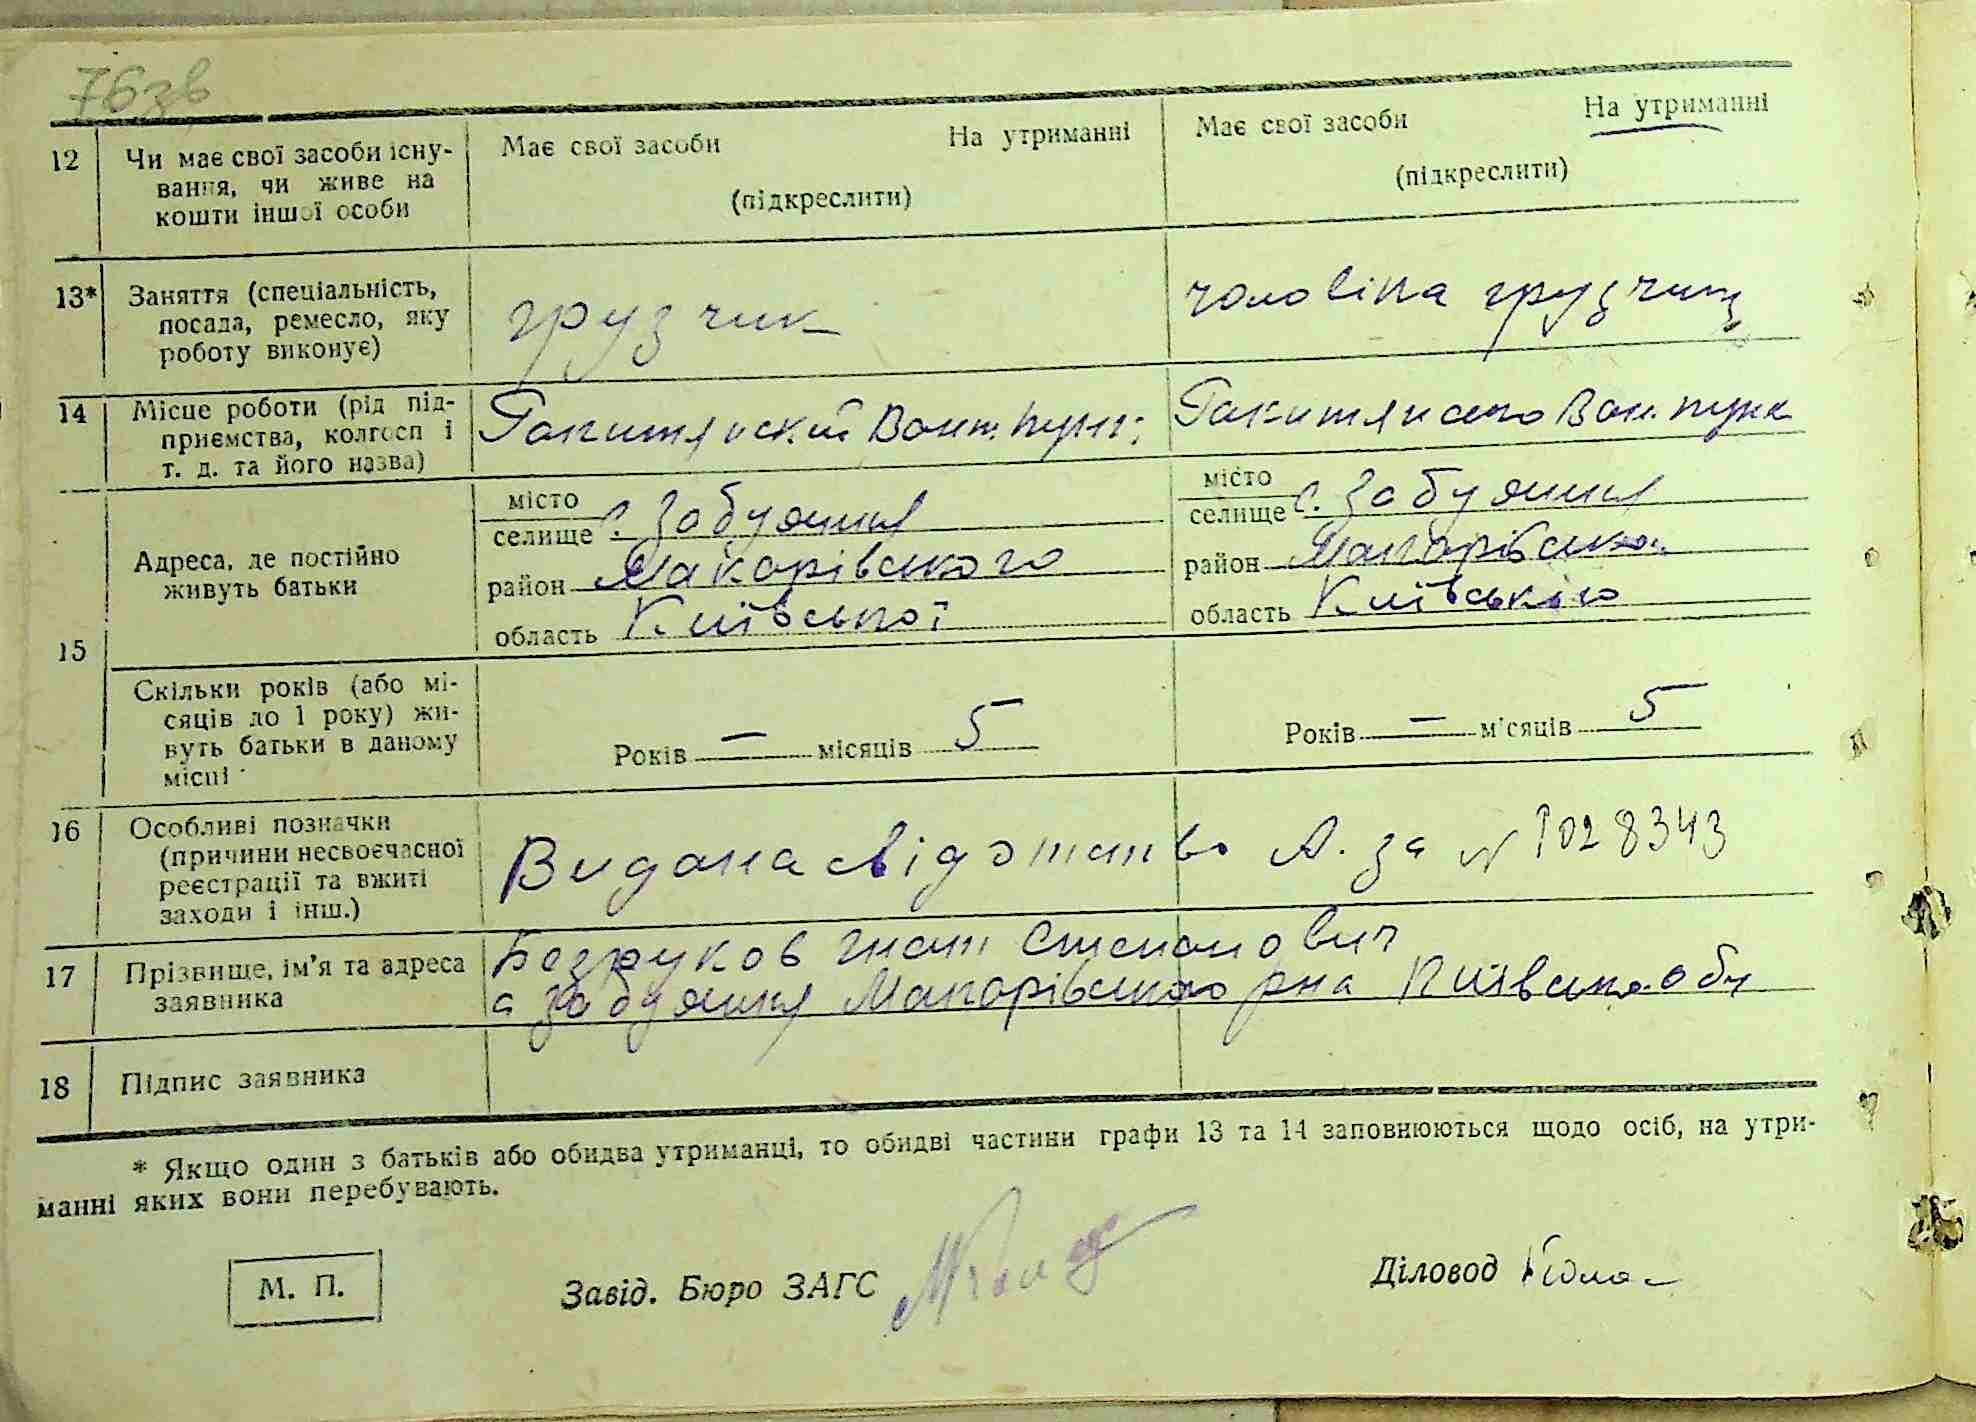 76зв
12 Чи має свої засоби існу-
вання, чи живе на
кошти іншої особи
Має свої засоби На утриманні
(підкреслити)
Має свої засоби На утриманні
(підкреслити)
13* Заняття (спеціальність,
посада, ремесло, яку
роботу виконує)
грузчик
чоловіка грузчик
14 Місце роботи (рід під-
приємства, колгосп і
т. д. та його назва)
15
Адреса, де постійно
живуть батьки
місто
селище с. Забуяння
район Макарівського
область Київської
місто
селище с. Забуяння
район Макарівсько
область
Скільки років (або мі-
сяців до 1 року) жи-
вуть батьки в даному
місці
Років — місяців 5
Років — місяців 5
16 Особливі позначки
(причини несвоєчасної
реєстрації та вжиті
заходи і інш.)
Видана свідотство А. за № 1028343
17 Прізвище, ім'я та адреса
заявника
Безруков Гнат Степанович
с Забуяння Макарівського рна Київсько обл
18 Підпис заявника
* Якщо один з батьків або обидва утриманці, то обидві частини графи 13 та 14 заповнюються щодо осіб, на утри-
манні яких вони перебувають.
М. П.
Завід. Бюро ЗАГС
Діловод